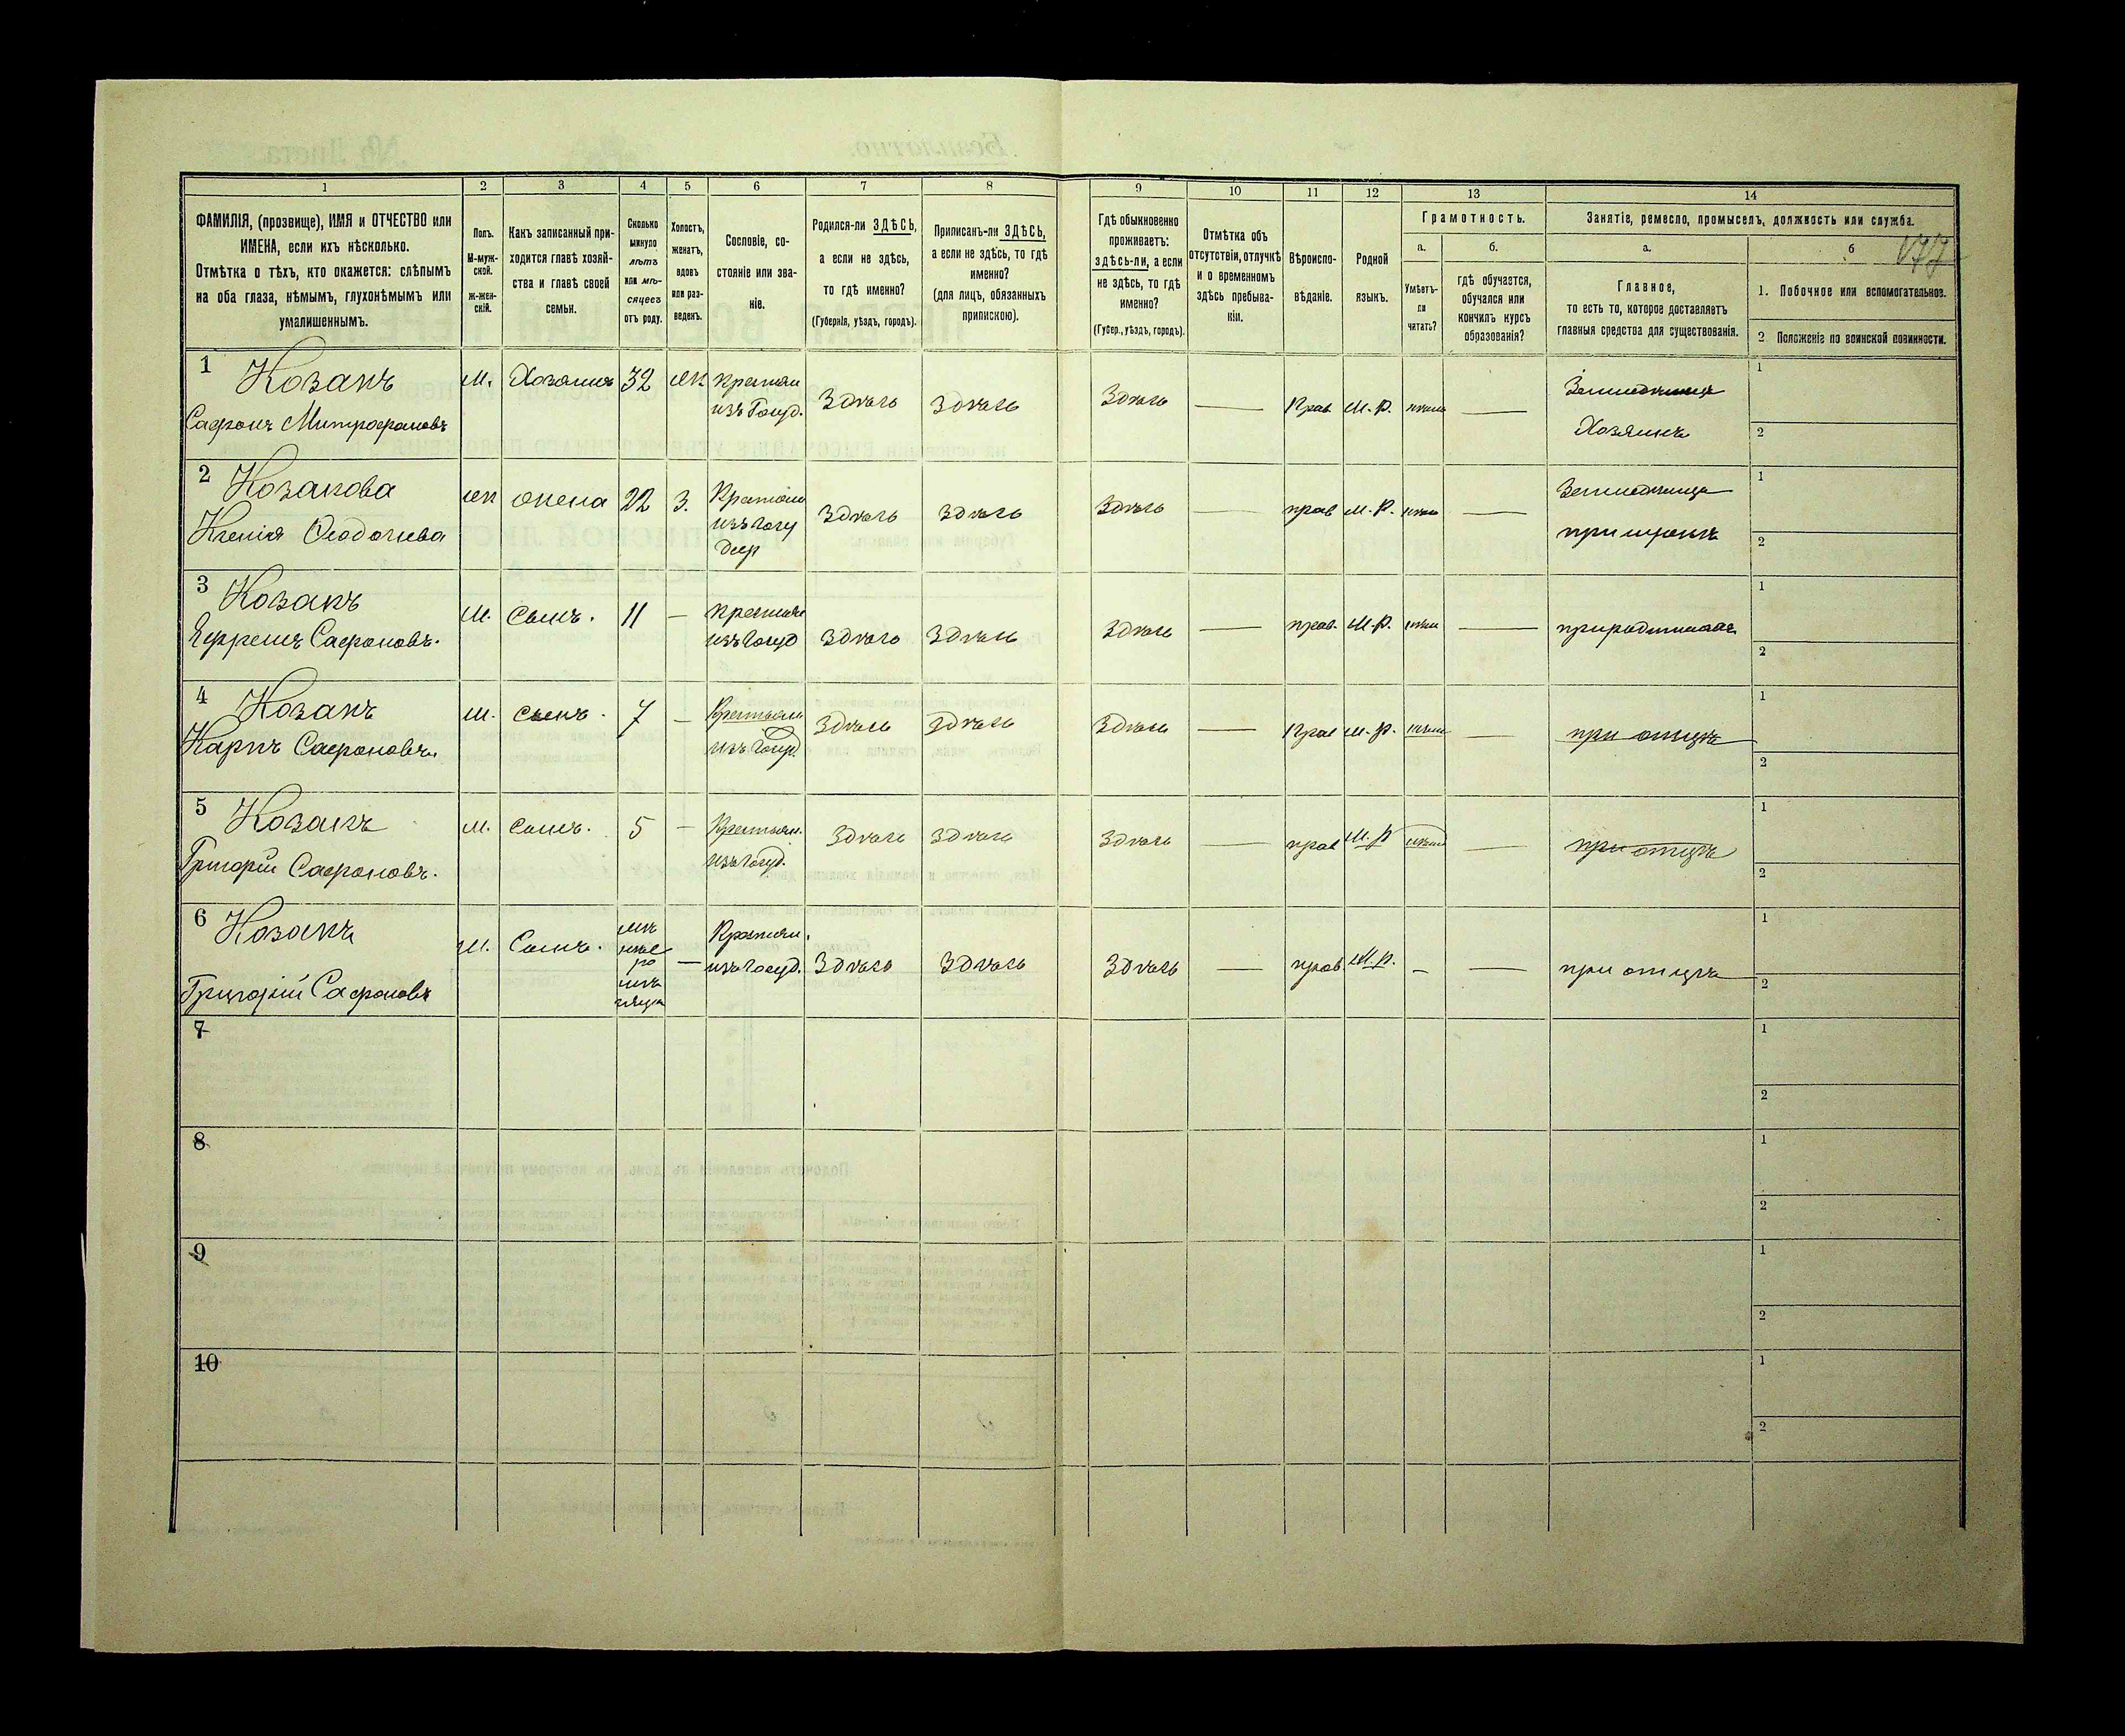 1 2 3 4 5 6 7 8 9 10 11 12 13 14
ФАМИЛІЯ, (прозвище), ИМЯ и ОТЧЕСТВО или
ИМЕНА, если ихъ нѣсколько.
Отмѣтка о тѣхъ, кто окажется: слѣпымъ
на оба глаза, нѣмымъ, глухонѣмымъ или
умалишеннымъ.
Полъ.
М-муж-
ской.
ж-жен-
скій.
Какъ записанный при-
ходится главѣ хозяй-
ства и главѣ своей
семьи.
Сколько
минуло
лѣтъ
или мѣ-
сяцевъ
отъ роду.
Холостъ,
женатъ,
вдовъ
или раз-
веденъ.
Сословіе, со-
стояніе или зва-
ніе.
Родился-ли ЗДѢСЬ,
а если не здѣсь,
то гдѣ именно?
(Губернія, уѣздъ, городъ).
Приписанъ-ли ЗДѢСЬ,
а если не здѣсь, то гдѣ
именно?
(для лицъ, обязанныхъ
припискою).
Гдѣ обыкновенно
проживаетъ:
здѣсь-ли, а если
не здѣсь, то гдѣ
именно?
(Губер., уѣздъ, городъ).
Отмѣтка объ
отсутствіи, отлучкѣ
и о временномъ
здѣсь пребыва-
ніи.
Вѣроиспо-
вѣданіе.
Родной
языкъ.
Грамотность.
а.
Умѣетъ-
ли
читать?
б.
гдѣ обучается,
обучался или
кончилъ курсъ
образованія?
Занятіе, ремесло, промыселъ, должность или служба.
а.
Главное,
то есть то, которое доставляетъ
главныя средства для существованія.
б
1. Побочное или вспомогательное.
2 Положеніе по воинской повинности.
177
1 Козакъ м. Хозяинъ 32 жн крестьян Здѣсь Здѣсь Здѣсь — Прав М.Р. — 1
изъ Госуд.
Сафронъ Митрофановъ Хозяинъ 2
2 Козакова жн жена 22 З. Крестьян Здѣсь Здѣсь Здѣсь — прав М.Р. — 1
изъ госу
дар
Ксенія 2
3 Козакъ м. Сынъ. 11 — крестьян Здѣсь Здѣсь Здѣсь — прав. М.Р. — 1
изъ госуд
Ефремъ Сафроновъ. 2
4 Козакъ м. Сынъ. 7 — Крестьян Здѣсь Здѣсь Здѣсь — Прав М.Р. — при отцѣ 1
изъ госуд.
Карпъ Сафроновъ. 2
5 Козакъ м. Сынъ. 5 — Крестьян. Здѣсь Здѣсь Здѣсь — прав М.Р — при отцѣ 1
изъ госуд.
Григорій Сафроновъ. 2
6 Козакъ м. Сынъ. — Крестьян. Здѣсь Здѣсь Здѣсь — прав. М.Р. — — при отцѣ 1
изъ госуд.
Григорій Сафроновъ 2
7 1
2
8 1
2
9 1
2
10 1
2